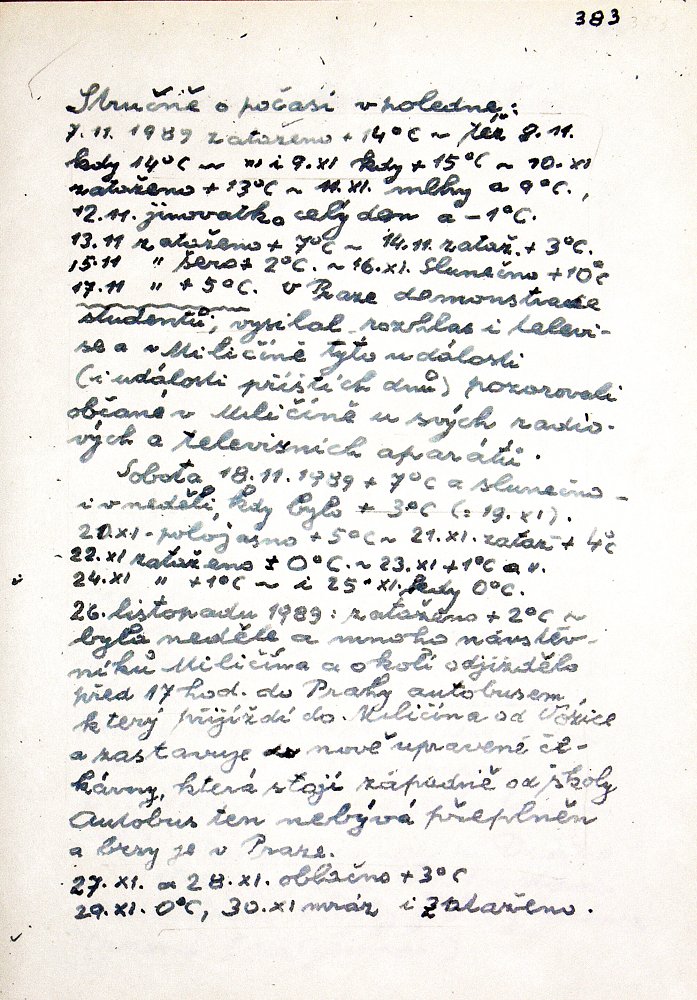 383
Stručně o počasí v poledne:
7.11. 1989 zataženo + 14°C ~ též 8.11.
kdy 14°C ~ XI i 9.XI kdy + 15°C ~ 10.XI
zataženo + 13°C ~ 11.XI. mlhy a 9°C.,
12.11. jinovatka celý den a -1°C.
13.11 zataženo + 7°C ~ 14.11. zataž. + 3°C.
15.11 " šero + 2°C. ~ 16.XI. Slunečno + 10°C
17.11 " + 5°C. v Praze demonstrace
studentů, vysílal rozhlas i televi-
se a v Miličíně tyto události
(i události příštích dnů) pozorovali
občané v Miličíně u svých radio-
vých a televizních aparátů.
Sobota 18.11.1989 + 7°C a slunečno -
i v neděli, kdy bylo + 3°C (= 19.XI).
20.XI - polojasno + 5°C ~ 21.XI. zataž + 4°C
22.XI zataženo ± 0°C. ~ 23.XI + 1°C a ".
24.XI " + 1°C ~ i 25.XI. kdy 0°C.
26. listopadu 1989: zataženo + 2°C ~
byla neděle a mnoho návštěv-
níků Miličína a okolí odjíždělo
před 17 hod. do Prahy autobusem,
který přijíždí do Miličína od Vožice
a zastavuje nově upravené če-
kárny, která stojí západně od školy
Autobus ten nebývá přeplněn
a brzy je v Praze.
27.XI. a 28.XI. oblačno + 3°C
29.XI. 0°C, 30.XI mráz i zataženo.